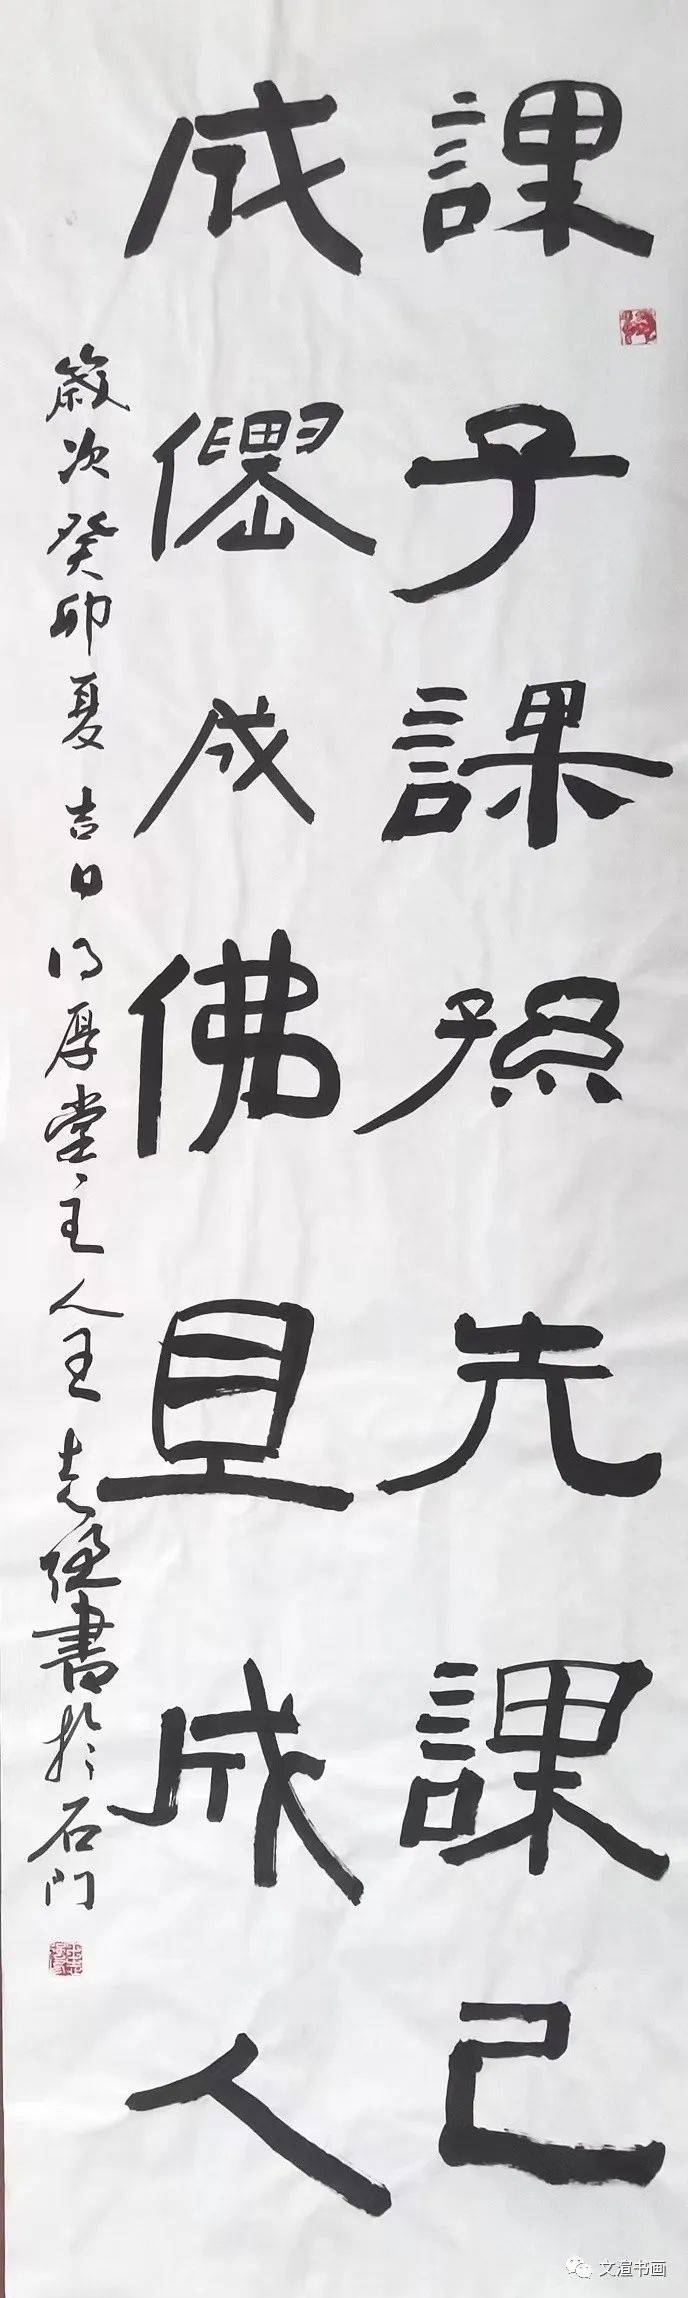 課子課孫先課己
成僊成佛且成人
歲次癸卯夏吉日得厚堂主人王志強書於石門
文渲书画